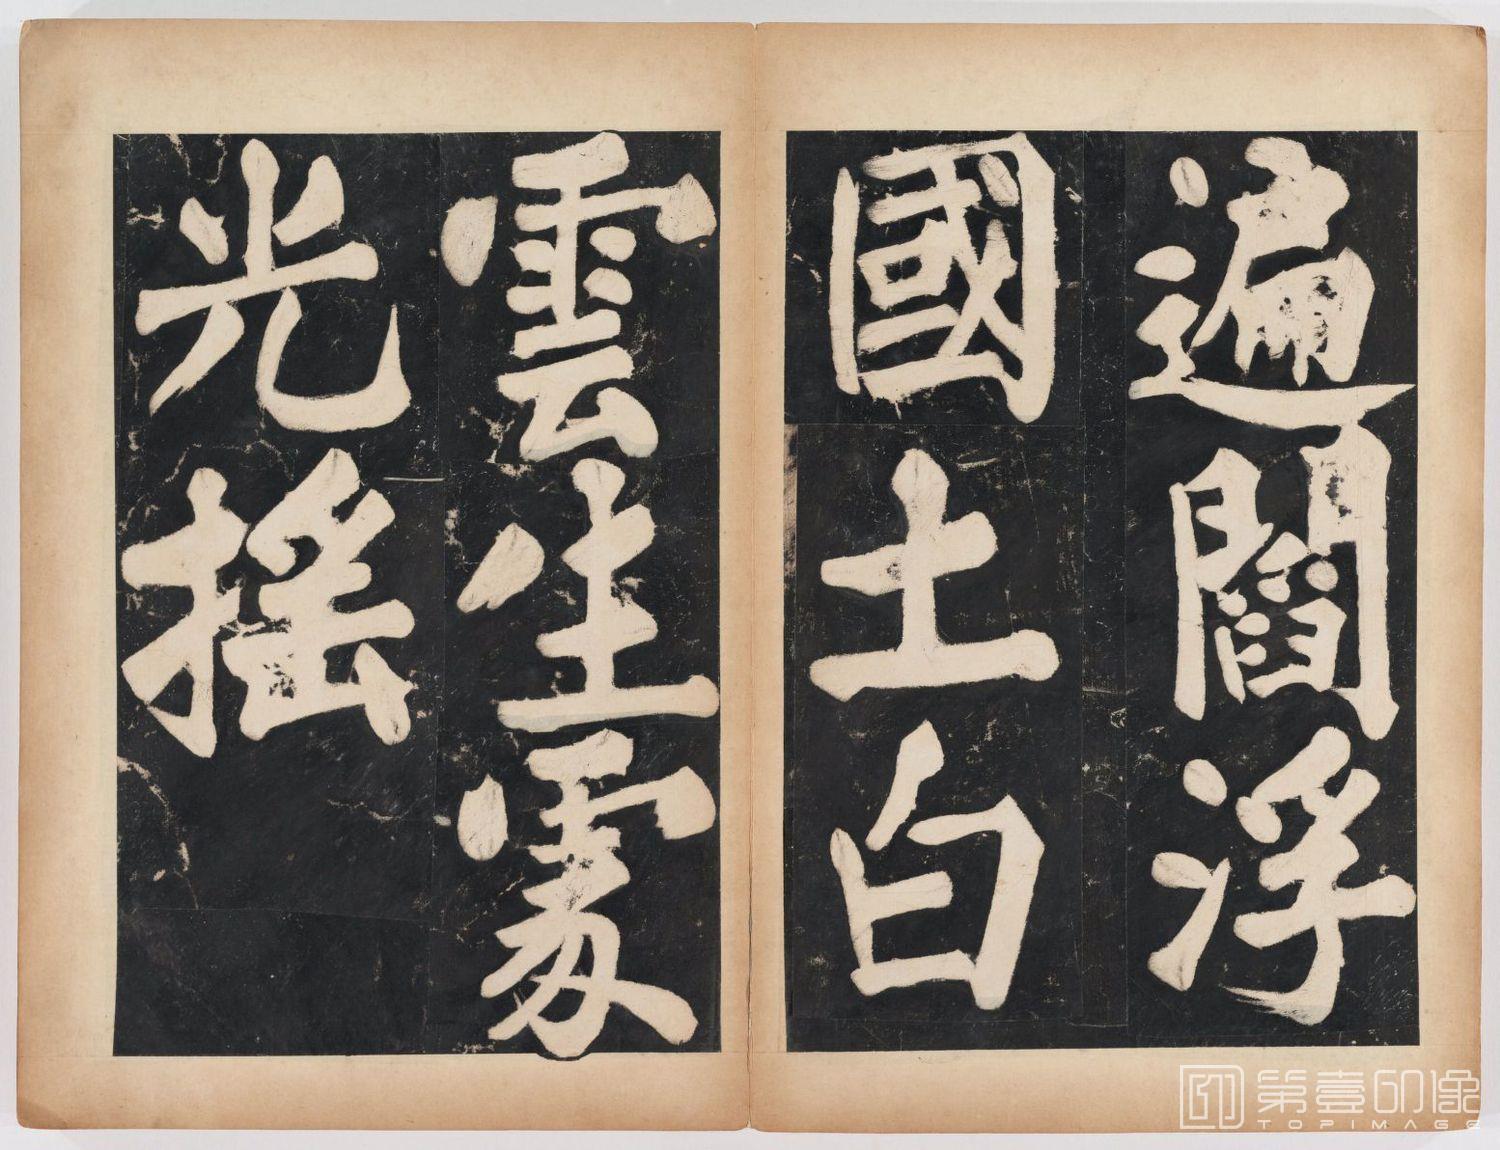 遍閻浮
國土白
雲生處
光搖
第壹印像
TOPIMAGE